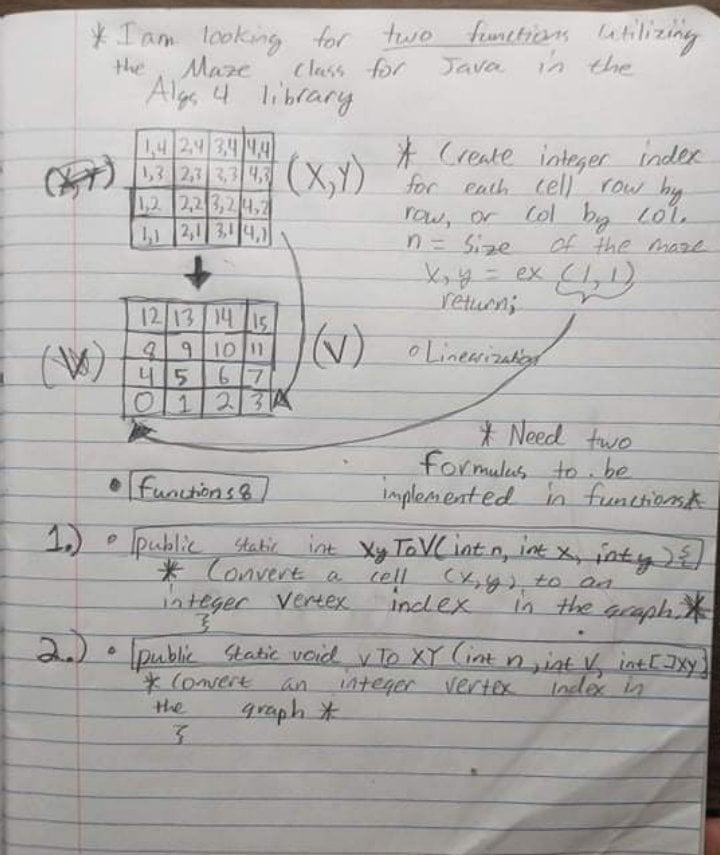 * I am looking for two functions utilizing
the Maze class for Java in the
Algs 4 library
1,4 2,4 3,4 4,4
1,3 2,3 3,3 4,3
(X,Y)
1,2 2,2 3,2 4,2
1,1 2,1 3,1 4,1
* Create integer index
for each cell row by
row, or col by col.
n = size of the maze
X, y = ex (1,1)
return;
12 13 14 15
8 9 10 11
(V)
4 5 6 7
0 1 2 3
o Linearization
* Need two
formulas to be
implemented in functions*
• functions:
1.) o public static int XyToV(int n, int x, int y) {
* Convert a cell (x,y) to an
integer vertex index in the graph. *
}
2.) o public static void vToXY (int n, int V, int[]xy)
* Convert an integer vertex index in
the graph *
}